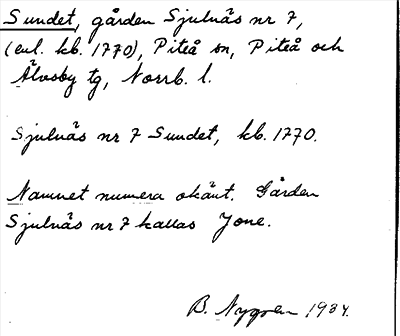 Sundet, gården Sjulnäs nr 7,
(enl. kb. 1770), Piteå sn, Piteå och
Älvsby tg, Norrb. l.
Sjulnäs nr 7 Sundet, kb. 1770.
Namnet numera okänt. Gården
Sjulnäs nr 7 kallas Jone.
B. Nygren 1934.